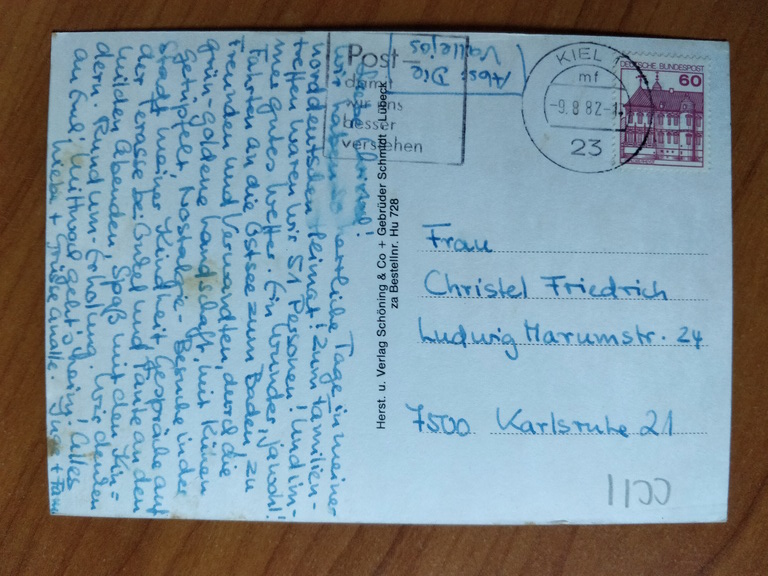 Abs: Die
Vallejos
Post-
damit
wir uns
besser
verstehen
KIEL 1
mf
-9.8.82-
23
DEUTSCHE BUNDESPOST
60
Liebe
Wir haben so herrliche Tage in meiner
norddeutschen Heimat! Zum Familien-
treffen waren wir 51 Personen! Und im-
mer gutes Wetter. Ein Wunder, jawohl!
Fahrten an die Ostsee zum Baden, zu
Freunden und Verwandten, durch die
grün-goldene Landschaft mit Kühen
getüpfelt, Nostalgie-Besuche in der
Stadt meiner Kindheit, Gespräche auf
der bei Onkel und Tante an den
milden Abenden, Spaß mit den Kin-
dern. Rundum-Erholung. Wir denken
an Euch! Mittwoch geht's heim. Alles
Liebe + Grüsse an alle. Inge + Fam
Herst. u. Verlag Schöning & Co + Gebrüder Schmidt · Lübeck
za Bestellnr. Hu 728
Frau
Christel Friedrich
Ludwig Marumstr. 24
7500 Karlsruhe 21